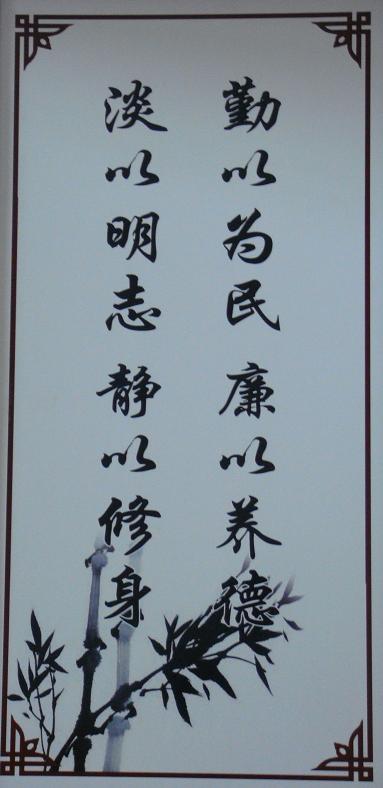 勤以为民 廉以养德
淡以明志 静以修身